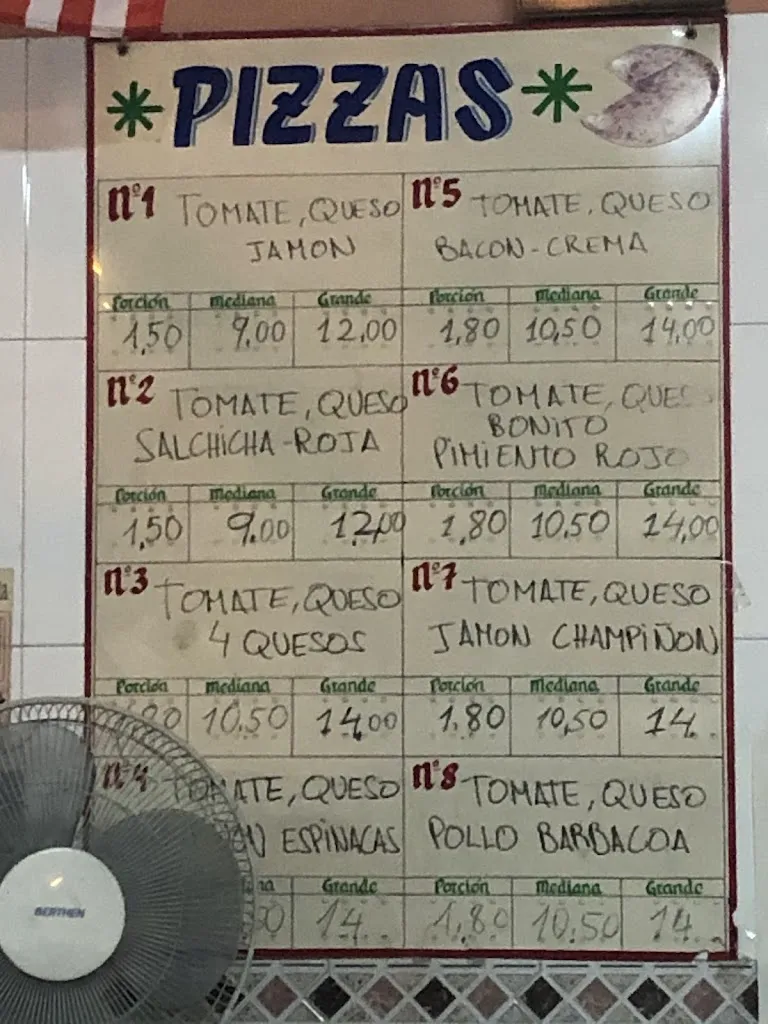 PIZZAS
Nº1 TOMATE, QUESO
JAMON
Porción Mediana Grande
1,50 9,00 12,00
Nº5 TOMATE, QUESO
BACON-CREMA
Porción Mediana Grande
1,80 10,50 14,00
Nº2 TOMATE, QUESO
SALCHICHA-ROJA
Porción Mediana Grande
1,50 9.00 12,00
Nº6 TOMATE, QUES
BONITO
PIMIENTO ROJO
Porción Mediana Grande
1,80 10,50 14,00
Nº3 TOMATE, QUESO
4 QUESOS
Porción Mediana Grande
10,50 14,00
Nº7 TOMATE, QUESO
JAMON CHAMPIÑON
Porción Mediana Grande
1,80 10,50 14
Nº4 TOMATE, QUESO
ESPINACAS
Grande
14
Nº8 TOMATE, QUESO
POLLO BARBACOA
Porción Mediana Grande
1,80 10,50 14
BERTHEN